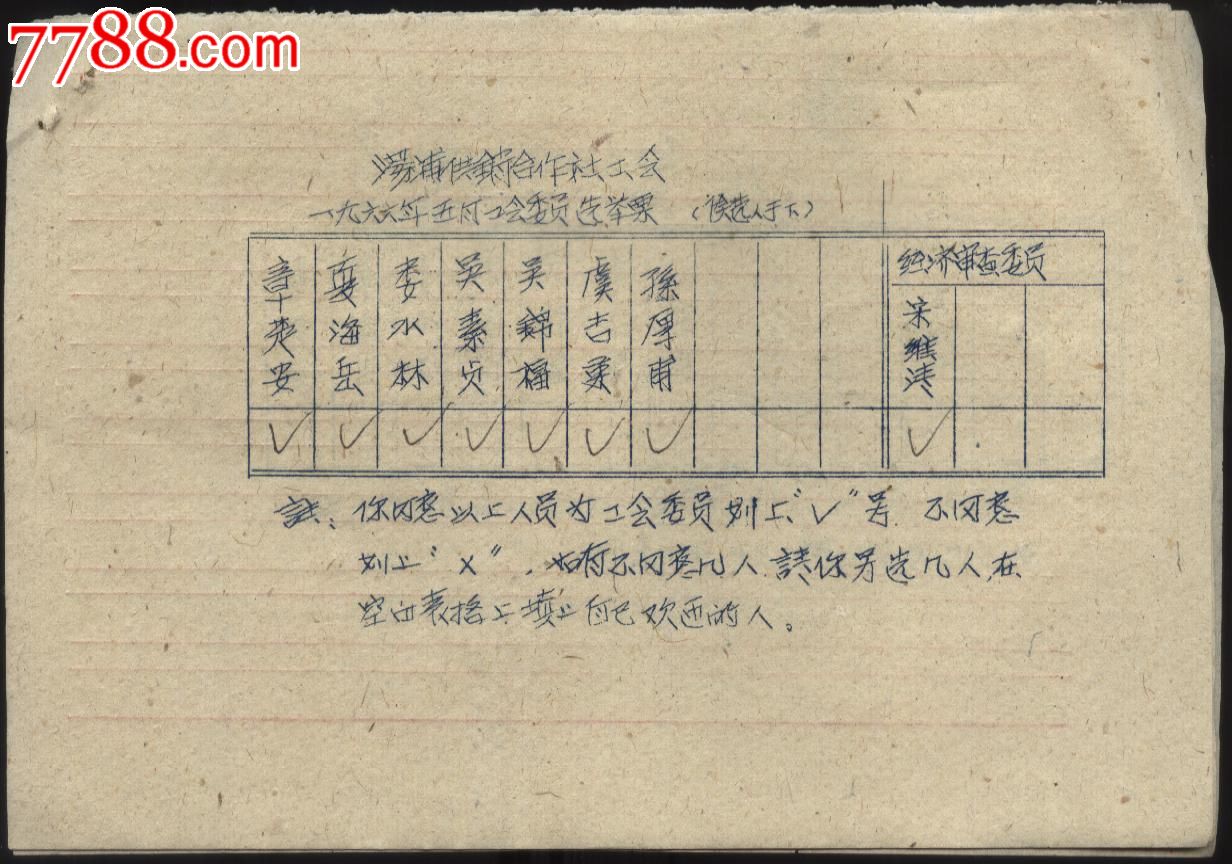 7788.com
浦供销合作社工会
一九六六年五月工会委员选举票 (候选人于下)
章楚安 海岳 娄水林 吴素贞 吴锦福 虞吉 孫厚甫
经济审查委员
宋维涛
註：你同意以上人员为工会委员划上“√”号 不同意
划上“X”，如有不同意几人 請你另选几人 在
空白表格上填上自己欢迎的人。